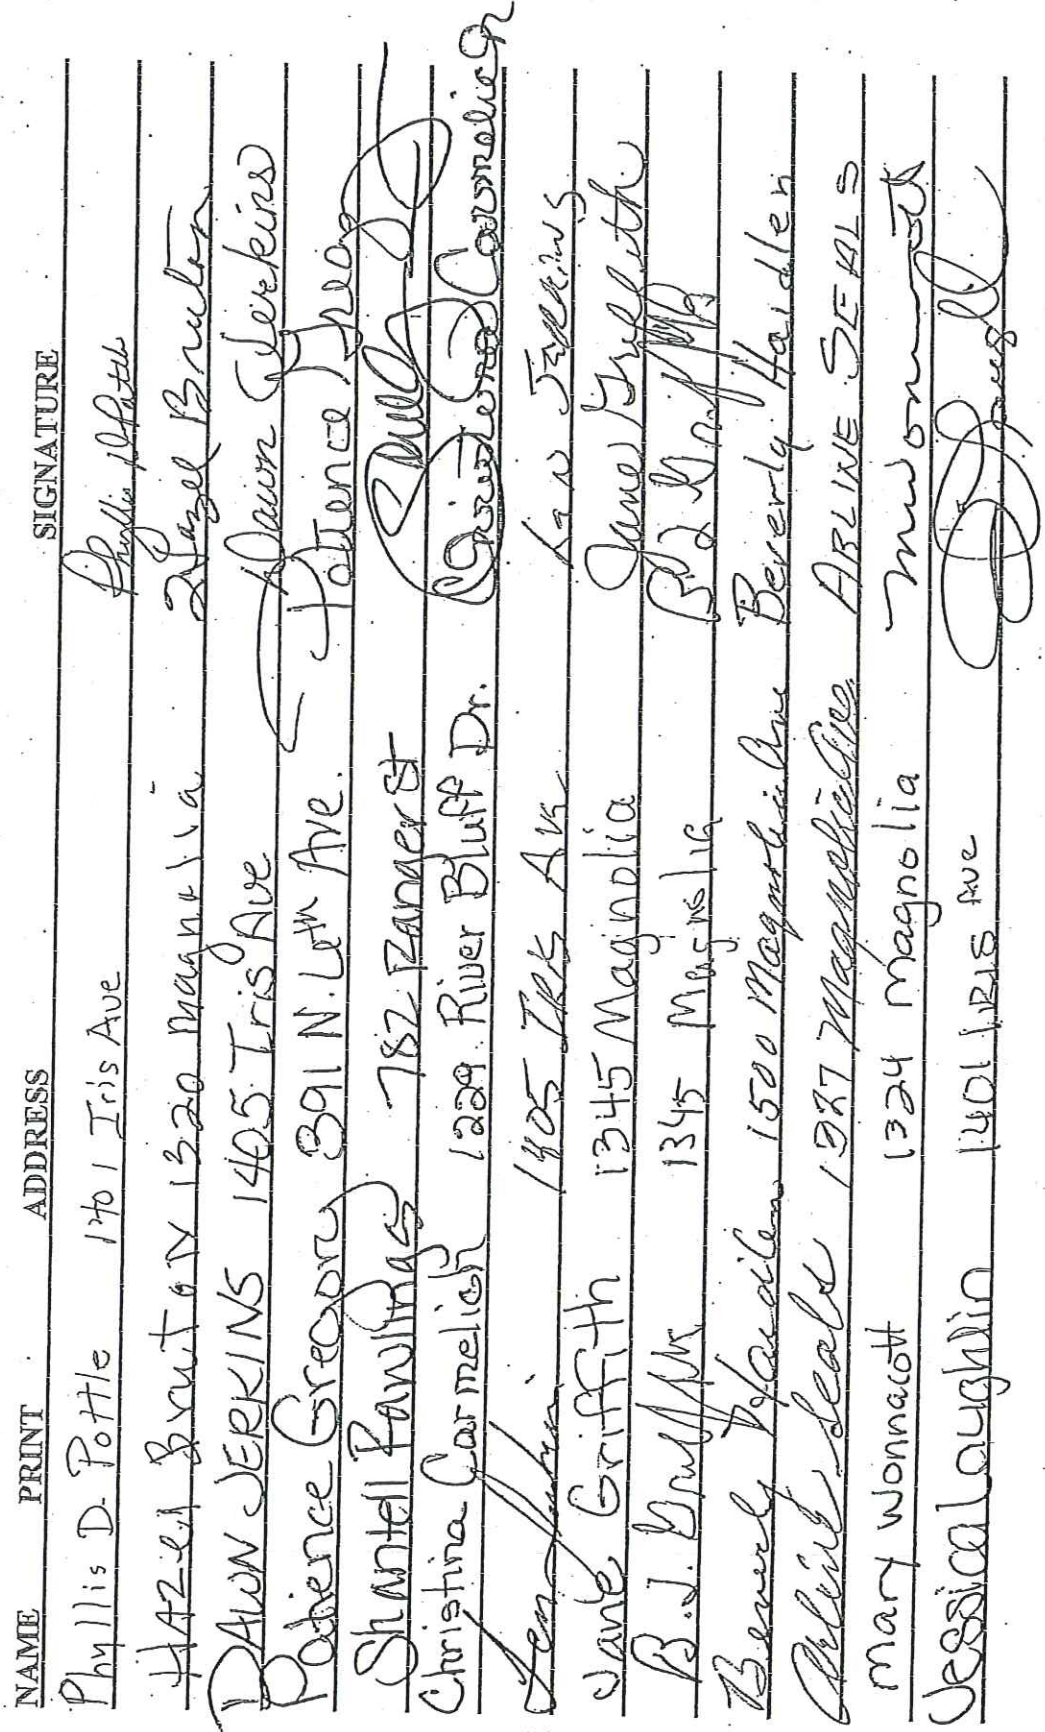 NAME PRINT ADDRESS SIGNATURE
Phyllis D. Pottle 1401 Iris Ave Phyllis D Pottle
HAZEL BrutoN 1320 magnolia Hazel Bruton
DAWN JERKINS 1405 Iris Ave Dawn Jerkins
Patience Gregory 391 N. 6th Ave. Patience Gregory
Shantell Rawlings 782 Ranger St
Christina Carmelich 1229 River Bluff Dr. Christina Carmelich
1405 IRIS Ave Ken Jerkins
Jane Griffith 1345 Maginolia Jane Griffith
B.J. Griffith 1345 Magnolia B J Griffith
Beverly Hardlen 1500 Magnolia Ave Beverly Hardlen
Arline Seals 1327 Magnolia Ave ARLINE SEALS
Mary Wonnacott 1324 Magnolia
Jessica Laughlin 1401 IRIS Ave